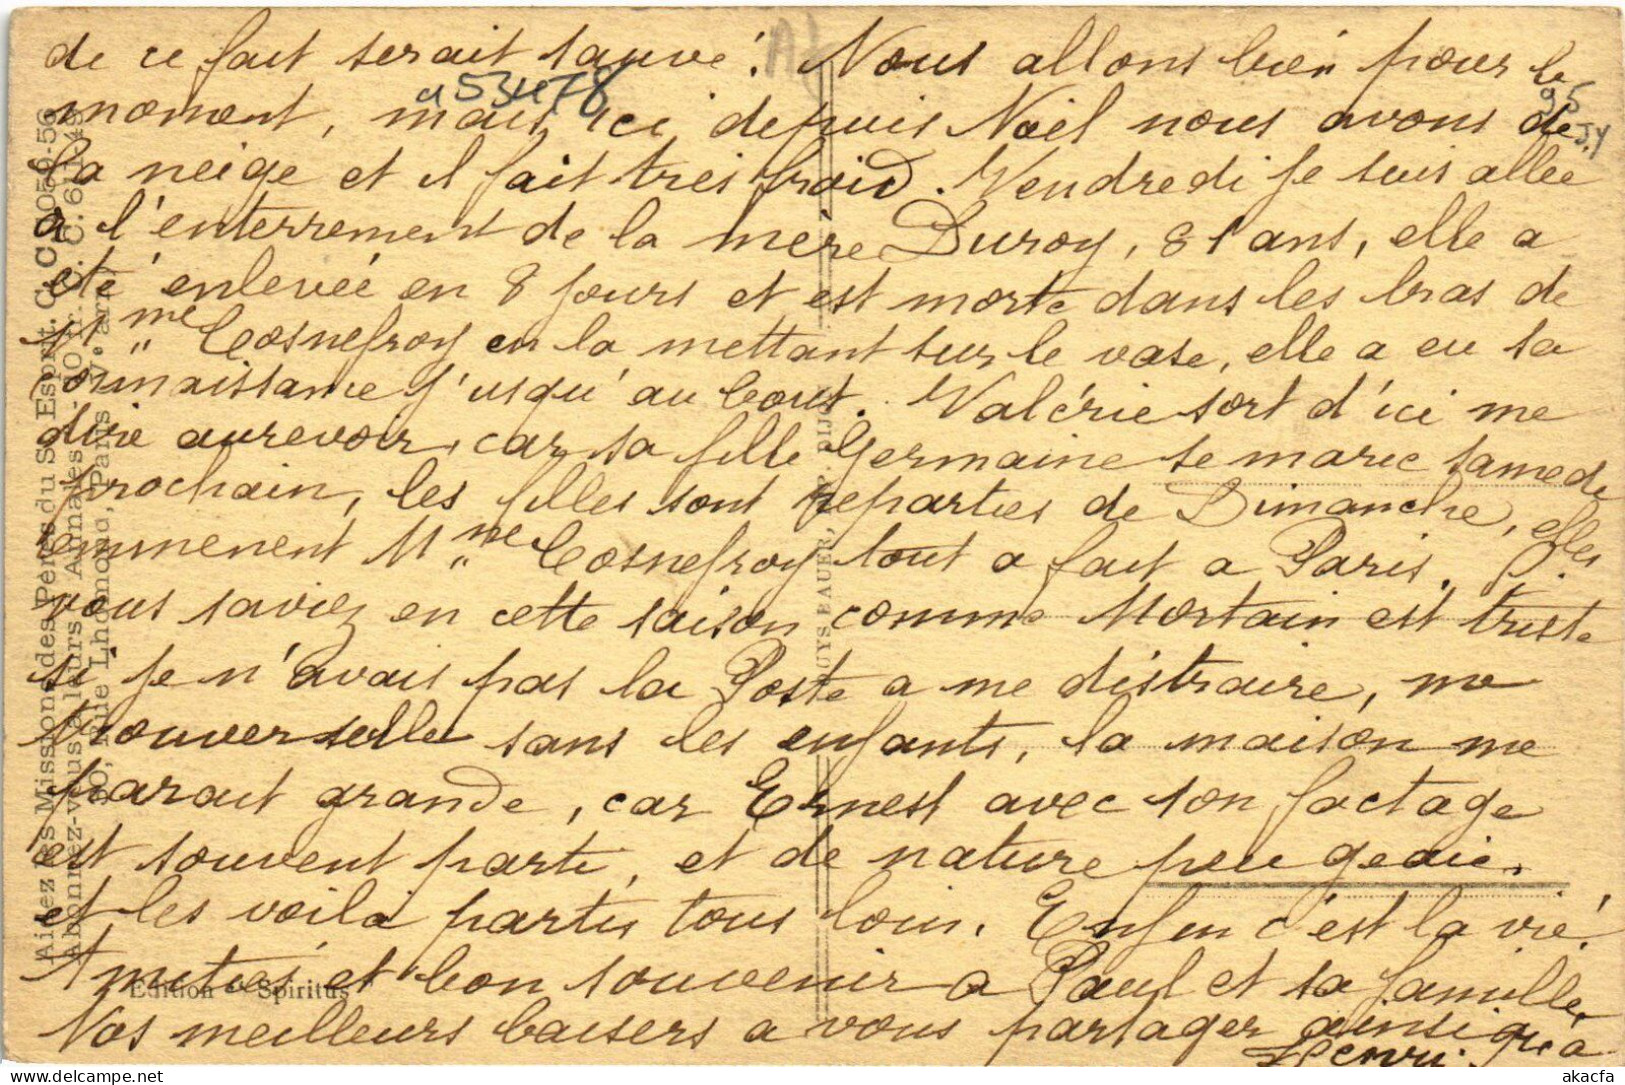 de ce fait serait sauvé! Nous allons bien pour le
moment, mais ici, depuis Noël nous avons de
la neige et il fait très froid. Vendredi je suis allée
a l'enterrement de la mère Duroy, 81 ans, elle a
été enlevée en 8 jours et est morte dans les bras de
Mme Cosnefroy en la mettant sur le vase, elle a eu sa
connaissance j'usqu'au bout. Valérie sort d'ici me
dire aurevoir, car sa fille Germaine se marie samedi
prochain, les filles sont reparties de Dimanche, elles
emmenent Mme Cosnefroy tout a fait a Paris. Si
vous saviez en cette saison comme Mortain est triste
si je n'avais pas la Poste a me distraire, me
trouver seule sans les enfants, la maison me
parait grande, car Ernest avec son factage
est souvent parti, et de nature peu gaaie.
et les voila partis tous loin. Enfin c'est la vie!
Amitiés et bon souvenir a Paul et sa famille,
Nos meilleurs baisers a vous partager ainsi qu'a
Henri.
a 53478
95
JY
Aidez les Missions des Pères du St Esprit. C. C.
Abonnez-vous à leurs Annales
30, Rue Lhomond, Paris Ve arrt
Edition "Spiritus"
akacfa